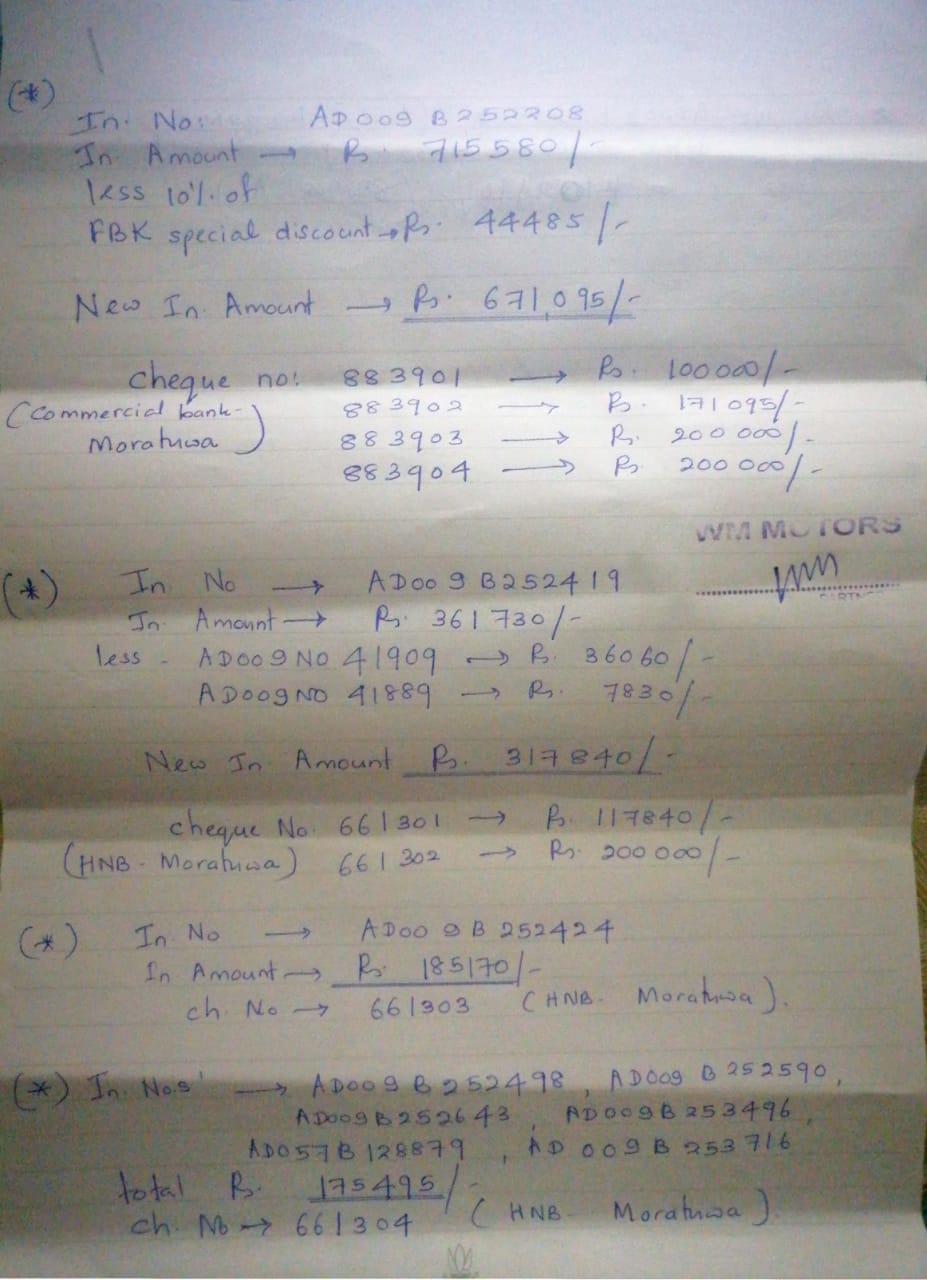 (*)
In. No: AD009 B252208
In Amount → Rs. 715580/-
less 10% of
FBK special discount → Rs. 44485/-
New In. Amount → Rs. 671,095/-
cheque no: 883901 → Rs. 100000/-
(Commercial bank- 883902 → Rs. 171095/-
Moratuwa) 883903 → Rs. 200 000/-
883904 → Rs. 200 000/-
WM MOTORS
(*) In No → AD009 B252419
PARTNER
In. Amount → Rs. 361730/-
less - AD009 NO 41909 → Rs. 36060/-
AD009 NO 41889 → Rs. 7830/-
New In Amount Rs. 317840/-
cheque No. 661301 → Rs. 117840/-
(HNB - Moratuwa) 661302 → Rs. 200 000/-
(*) In No → AD009B 252424
In Amount → Rs. 185170/-
ch. No → 661303 (HNB- Moratuwa).
(*) In. No.s' → AD009 B 252498, AD009 B 252590,
AD009 B 252643, AD009B 253496,
AD057B 128879, AD 009 B 253716
total Rs. 175495/-
ch. No → 661304 (HNB- Moratuwa).